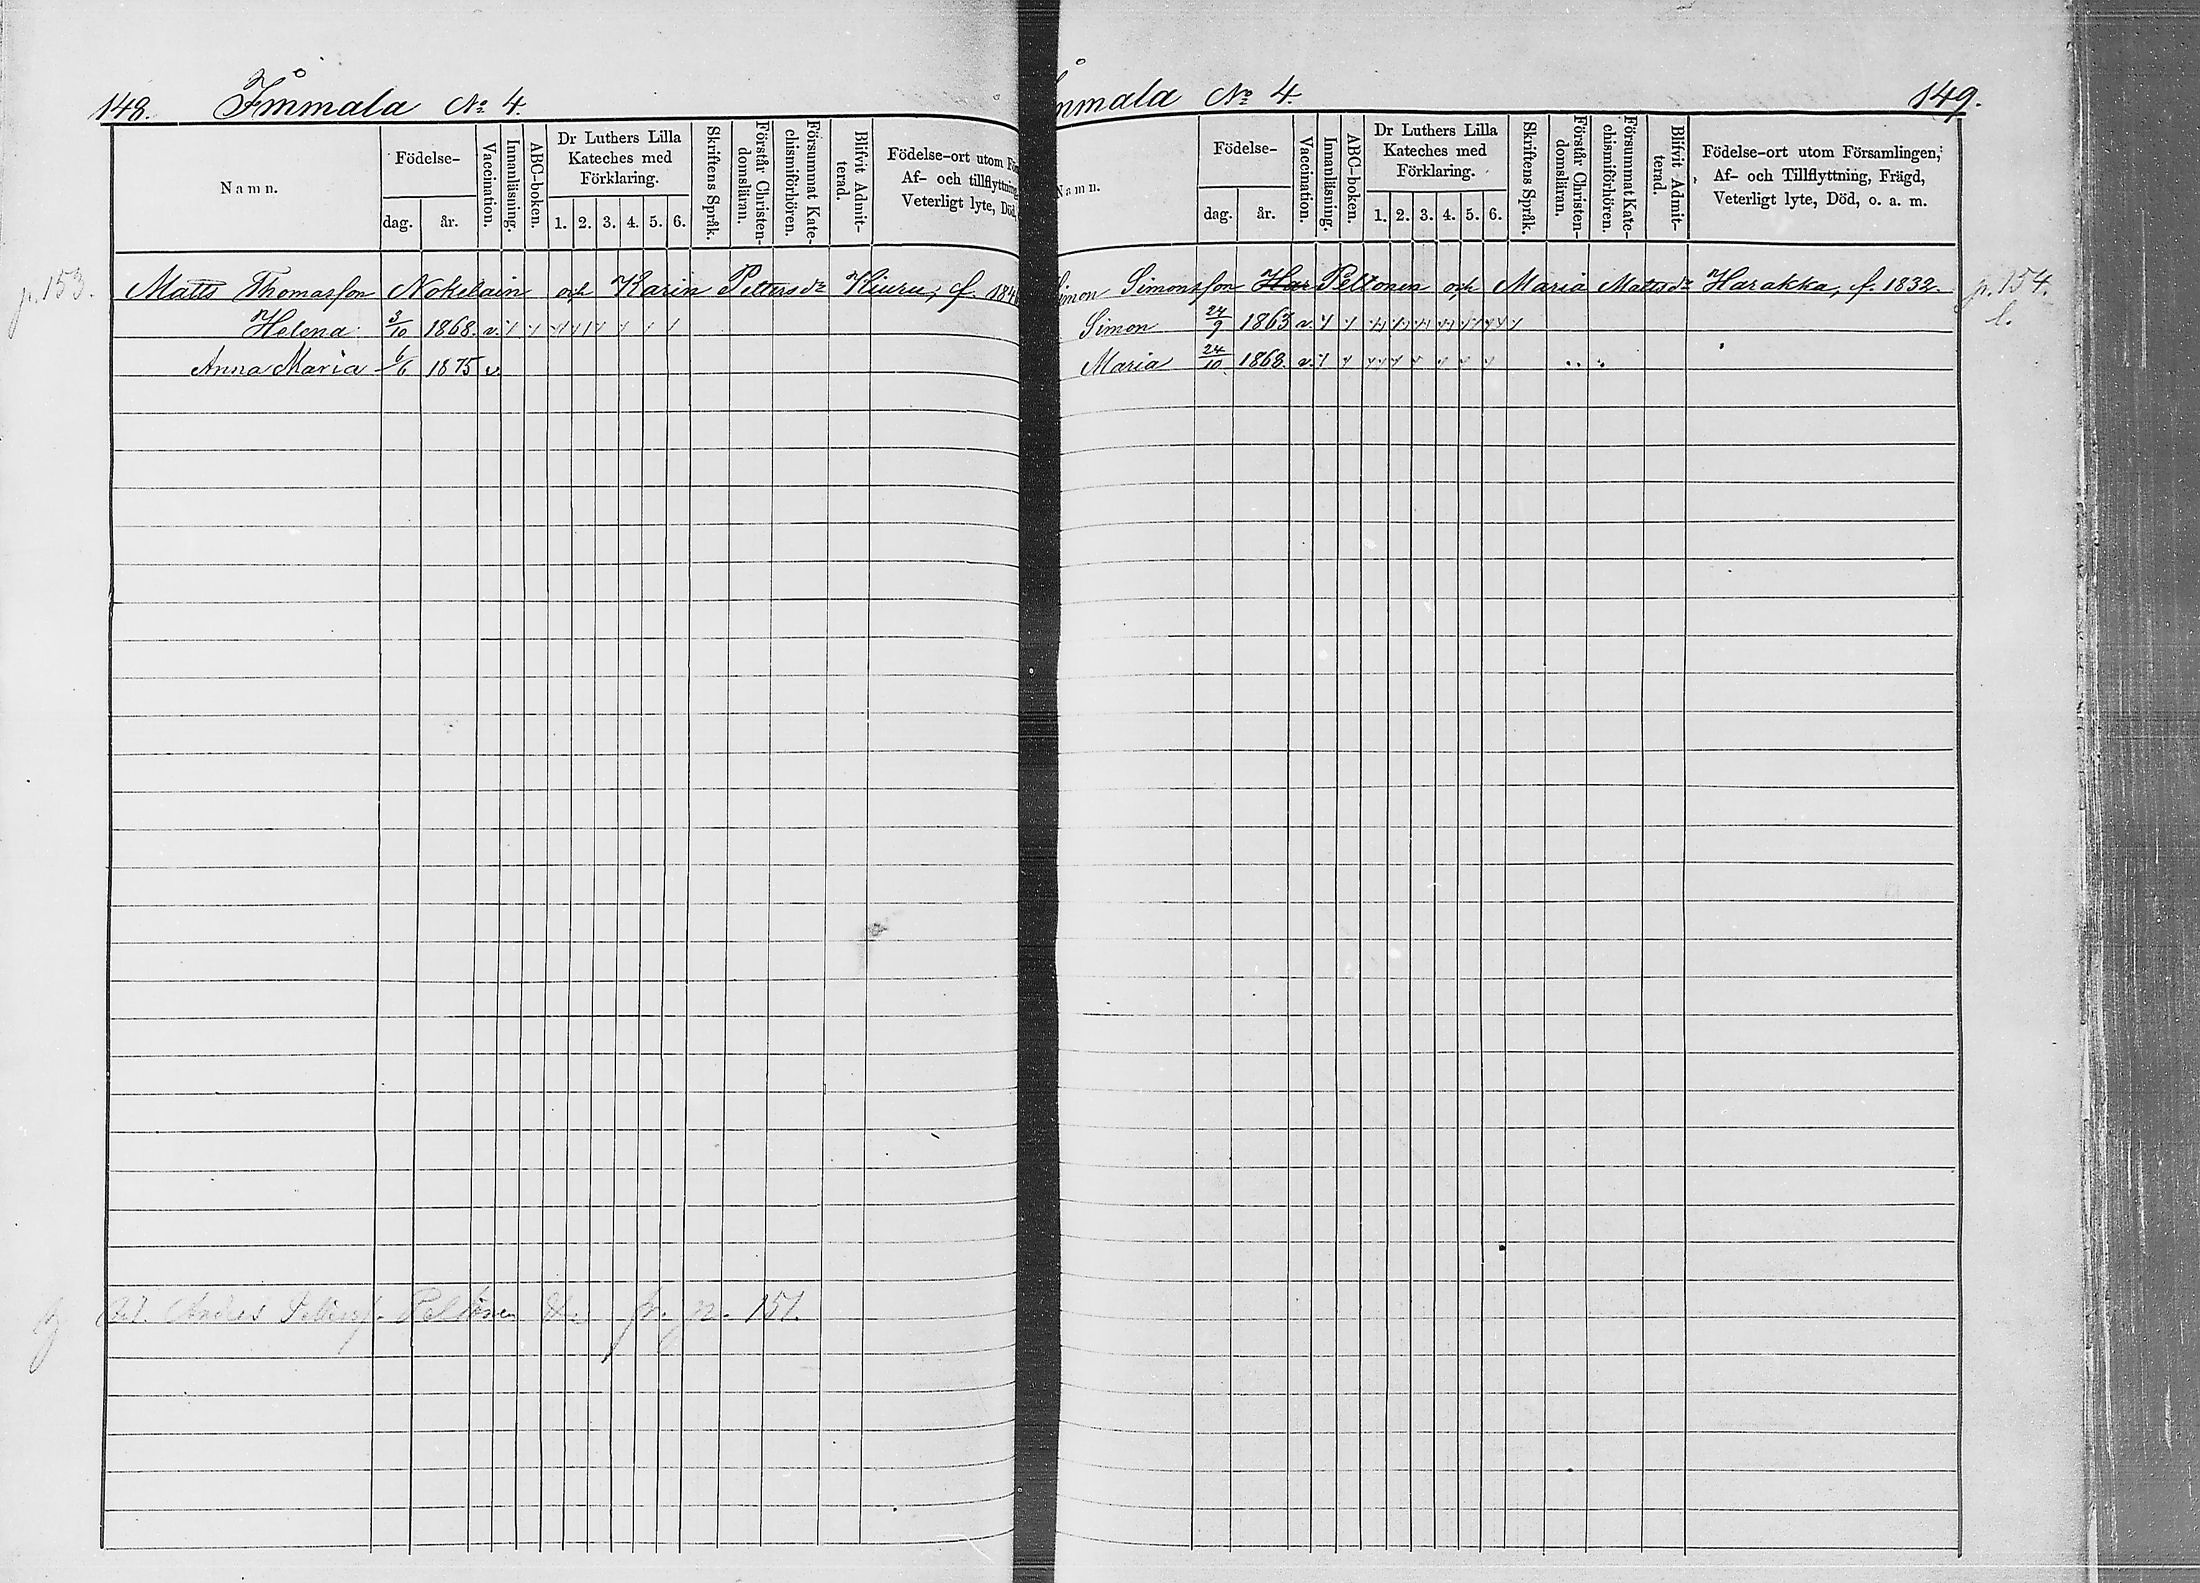 148. Immala № 4.
Namn.
Födelse-
dag. år.
Vaccination.
Innanläsning.
ABC-boken.
Dr Luthers Lilla
Kateches med
Förklaring.
1. 2. 3. 4. 5. 6.
Skriftens Språk.
Förstår Christen-
domsläran.
Försummat Kate-
chismiförhören.
Blifvit Admit-
terad.
Födelse-ort utom För
Af- och tillflyttning
Veterligt lyte, Död,
p. 153. Matts Thomasson Nokelain och Karin Pettersdr Kiuru, f. 184
Helena 3/10 1868. v.
Anna Maria 6/6 1875 v.
Anders Peltonen p. 151.
mmala № 4. 149.
Namn.
Födelse-
dag. år.
Vaccination.
Innanläsning.
ABC-boken.
Dr Luthers Lilla
Kateches med
Förklaring.
1. 2. 3. 4. 5. 6.
Skriftens Språk.
Förstår Christen-
domsläran.
Försummat Kate-
chismiförhören.
Blifvit Admit-
terad.
Födelse-ort utom Församlingen,
Af- och Tillflyttning, Frägd,
Veterligt lyte, Död, o. a. m.
Simon Simonsson Har Peltonen och Maria Mattsdr Harakka, f. 1832. p. 154.
Simon 24/9 1863 v. l.
Maria 24/10 1868. v.